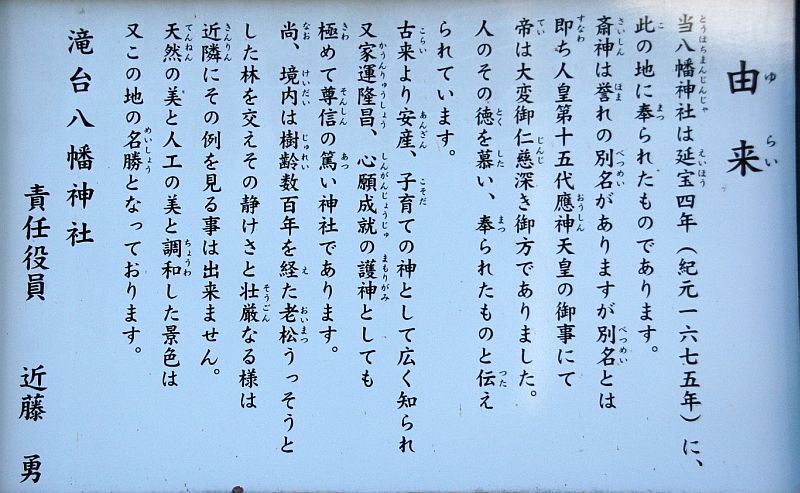 由来
当八幡神社は延宝四年(紀元一六七五年)に、
此の地に奉られたものであります。
斎神は誉れの別名がありますが別名とは
即ち人皇第十五代應神天皇の御事にて
帝は大変御仁慈深き御方でありました。
人のその徳を慕い、奉られたものと伝え
られています。
古来より安産、子育ての神として広く知られ
又家運隆昌、心願成就の護神としても
極めて尊信の篤い神社であります。
尚、境内は樹齢数百年を経た老松うっそうと
した林を交えその静けさと壮厳なる様は
近隣にその例を見る事は出来ません。
天然の美と人工の美と調和した景色は
又この地の名勝となっております。
滝台八幡神社
責任役員 近藤 勇